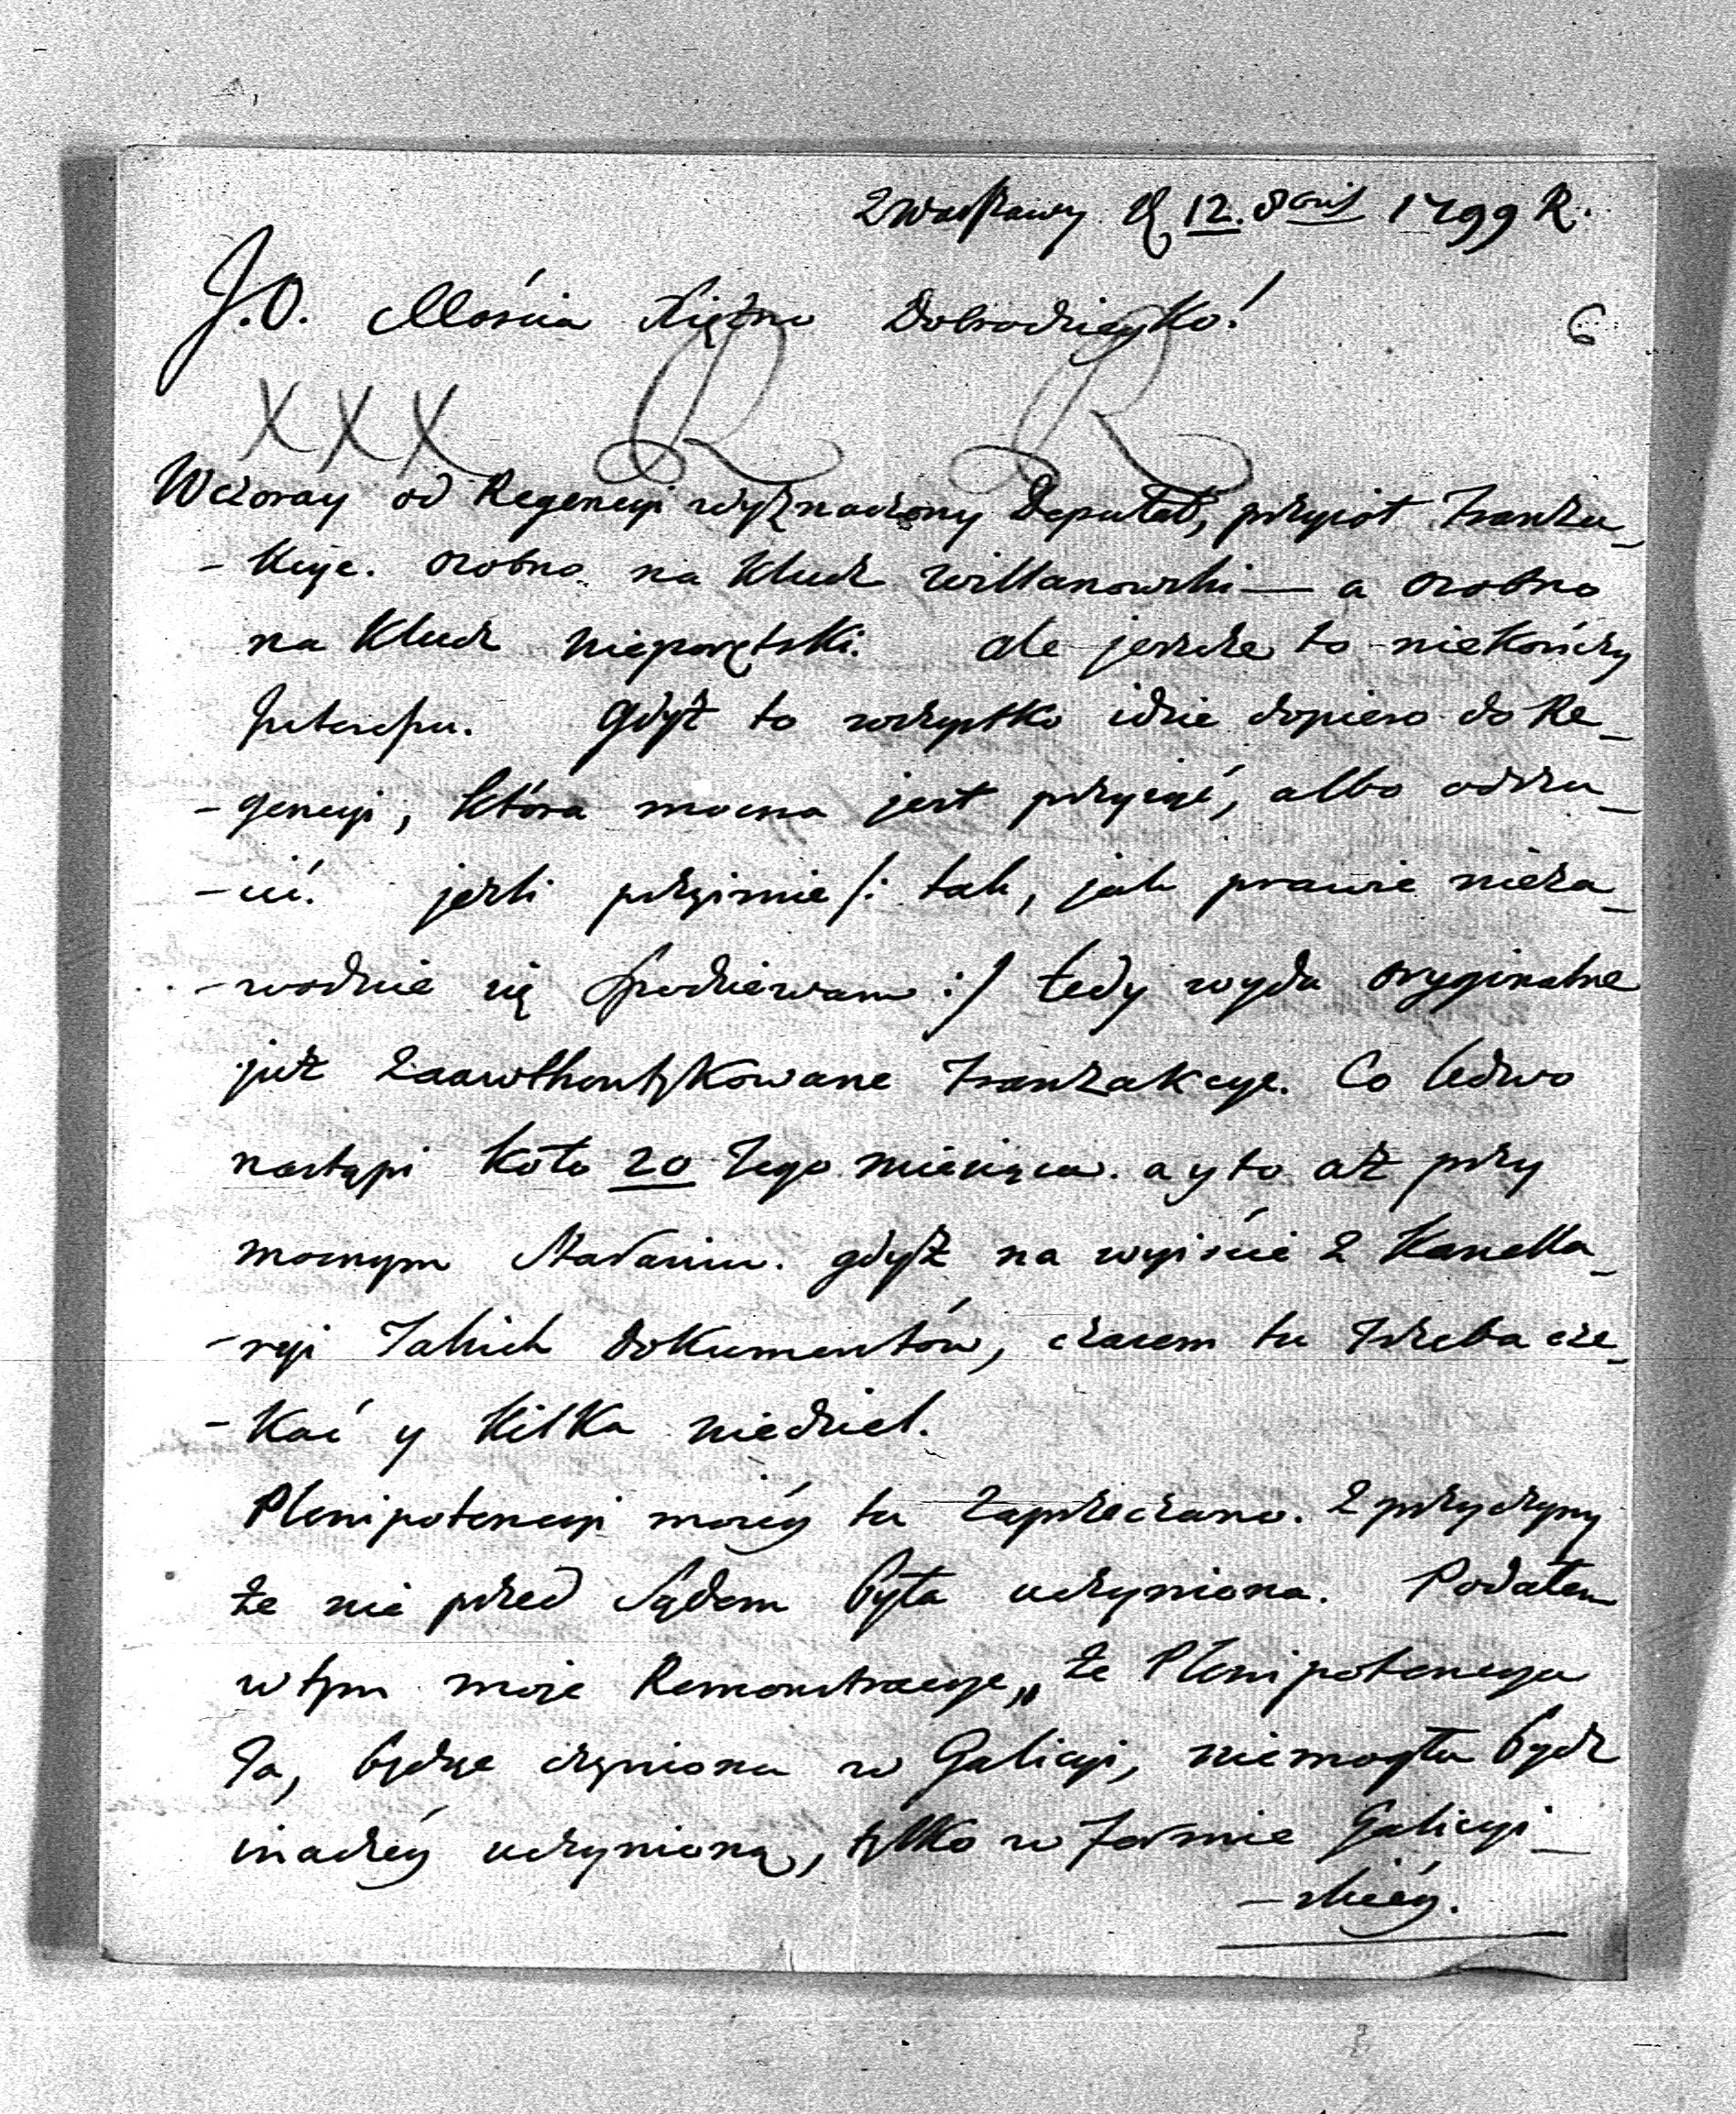 z Warszawy d. 12. 8bris 1799 R.
J.O. Mościa Xiężno Dobrodzieyko!
6
XXX R R
Wczoray od Regencyi wyznaczony Deputat, przyiął Tranza-
-kcye. osobno na Klucz Willanowski — a osobno
na Klucz Nieporętski. ale jeszcze to niekończy
Interessu. Gdyż to wszystko idzie dopiero do Re-
-gencyi, która mocna jest przyiąć, albo odrzu-
-cić. jeżli przyimie /: tak, jak prawie nieza-
-wodnie się spodziewam :/ tedy wyda oryginalne
już zaawthentykowane Tranzakcye. Co ledwo
nastąpi koło 20 Tego miesiąca. a y to aż przy
mocnym staraniu. gdyż na wyiście z Kancella-
-ryi Takich Dokumentów, czasem tu Trzeba cze-
-kać y kilka niedziel.
Plenipotencyi moiéy tu zaprzeczano. z przyczyny
że nie przed Sądem była uczyniona. Podałem
w tym moje Remonstracye „ że Plenipotencya
Ta, będąc czyniona w Galicyi, niemogła bydź
inaczéy uczyniona, tylko w Formie Galicyi-
-skiéy.